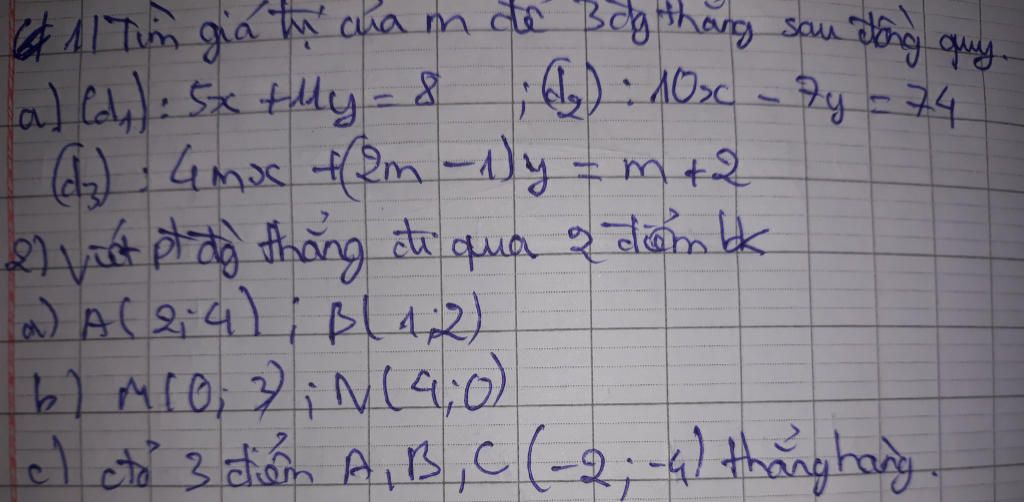 1) Tìm giá trị của m để 3 đg thẳng sau đồng quy.
a) (d1): 5x + 11y = 8 ; (d2): 10x - 7y = 74
(d3): 4mx + (2m - 1)y = m + 2
2) Viết pt đg thẳng đi qua 2 điểm
a) A(2; 4) ; B(1; 2)
b) M(0; 3) ; N(4; 0)
c) ctỏ 3 điểm A, B, C (-2; -4) thẳng hàng.